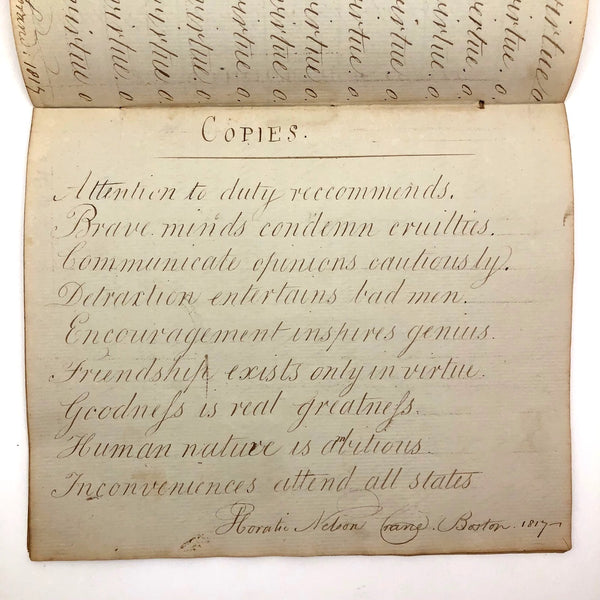 virtue. o. virtue. o. virtue. o. virtue. o. virtue. o. virtue. o. virtue. o. virtue. o. virtue. o.
1817
COPIES.
Attention to duty reccommends.
Brave minds condemn cruilties.
Communicate opinions cautiously.
Detraxtion entertains bad men.
Encouragement inspires genius.
Friendship exists only in virtue.
Goodneſs is real greatneſs.
Human nature is ambitious.
Inconveniences attend all states
Horatio Nelson Crane. Boston. 1817